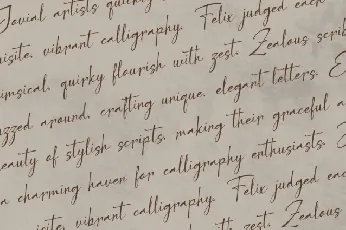 Jovial artists quickly
uisite, vibrant calligraphy. Felix judged each
himsical, quirky flourish with zest. Zealous scrib
uzzed around, crafting unique, elegant letters. E
eauty of stylish scripts, making their graceful a
a charming haven for calligraphy enthusiasts. J
isite, vibrant calligraphy. Felix judged eac
with zest. Zealous